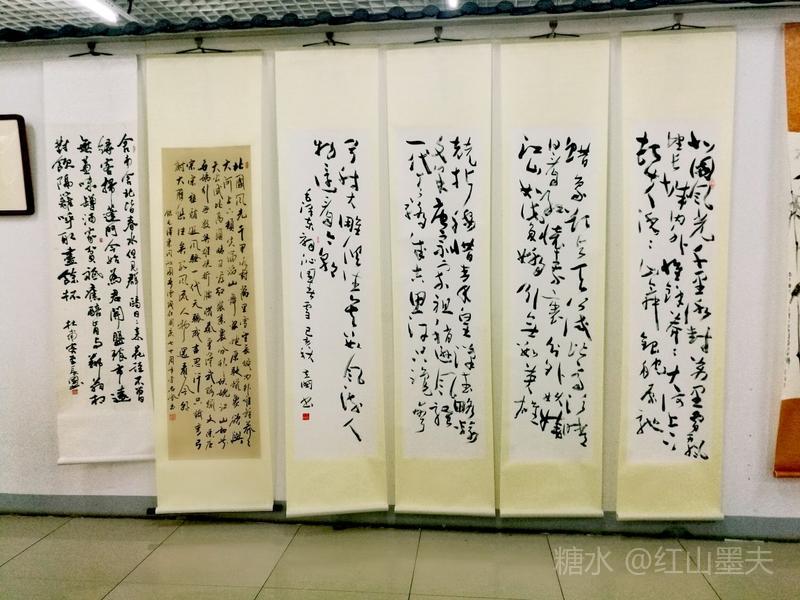 北国风光千里冰封万里雪飘
望长城内外惟余莽〻大河上下
顿失滔〻山舞银蛇原驰
蜡象欲与天公试比高须晴
日看红装素裹分外妖娆
江山如此多娇引无数英雄
竞折腰惜秦皇汉武略输
文采唐宗宋祖稍逊风骚
一代天骄成吉思汗只识弯
弓射大雕俱往矣数风流人
物还看今朝
毛泽东词沁园春雪 己亥秋
北國風光千里冰封萬里雪飘望長城内外惟餘莽〻
大河上下頓失滔滔山舞銀蛇原驰蠟象欲與
天公試比高須晴日看红装素裹分外妖娆江山如此
多嬌引無數英雄競折腰惜秦皇漢武略輸文采唐
宗宋祖稍逊風騷一代天驕成吉思汗只識彎弓
射大雕俱往矣數風流人物還看今朝
舍南舍北皆春水但見群鷗日〻来花径不曾
緣客掃蓬門今始為君開盤飧市遠
無兼味樽酒家貧祗舊醅肯與鄰翁相
對飲隔籬呼取盡餘杯
糖水 @红山墨夫